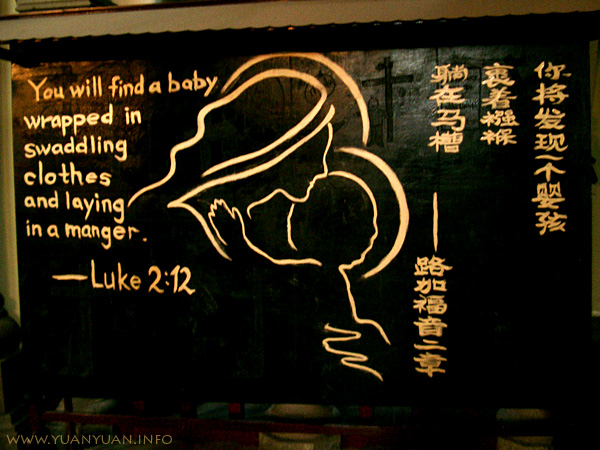 You will find a baby
wrapped in
swaddling
clothes
and laying
in a manger.
—Luke 2:12
你将发现一个婴孩
裹着襁褓
躺在马槽
——路加福音二章
WWW.YUANYUAN.INFO